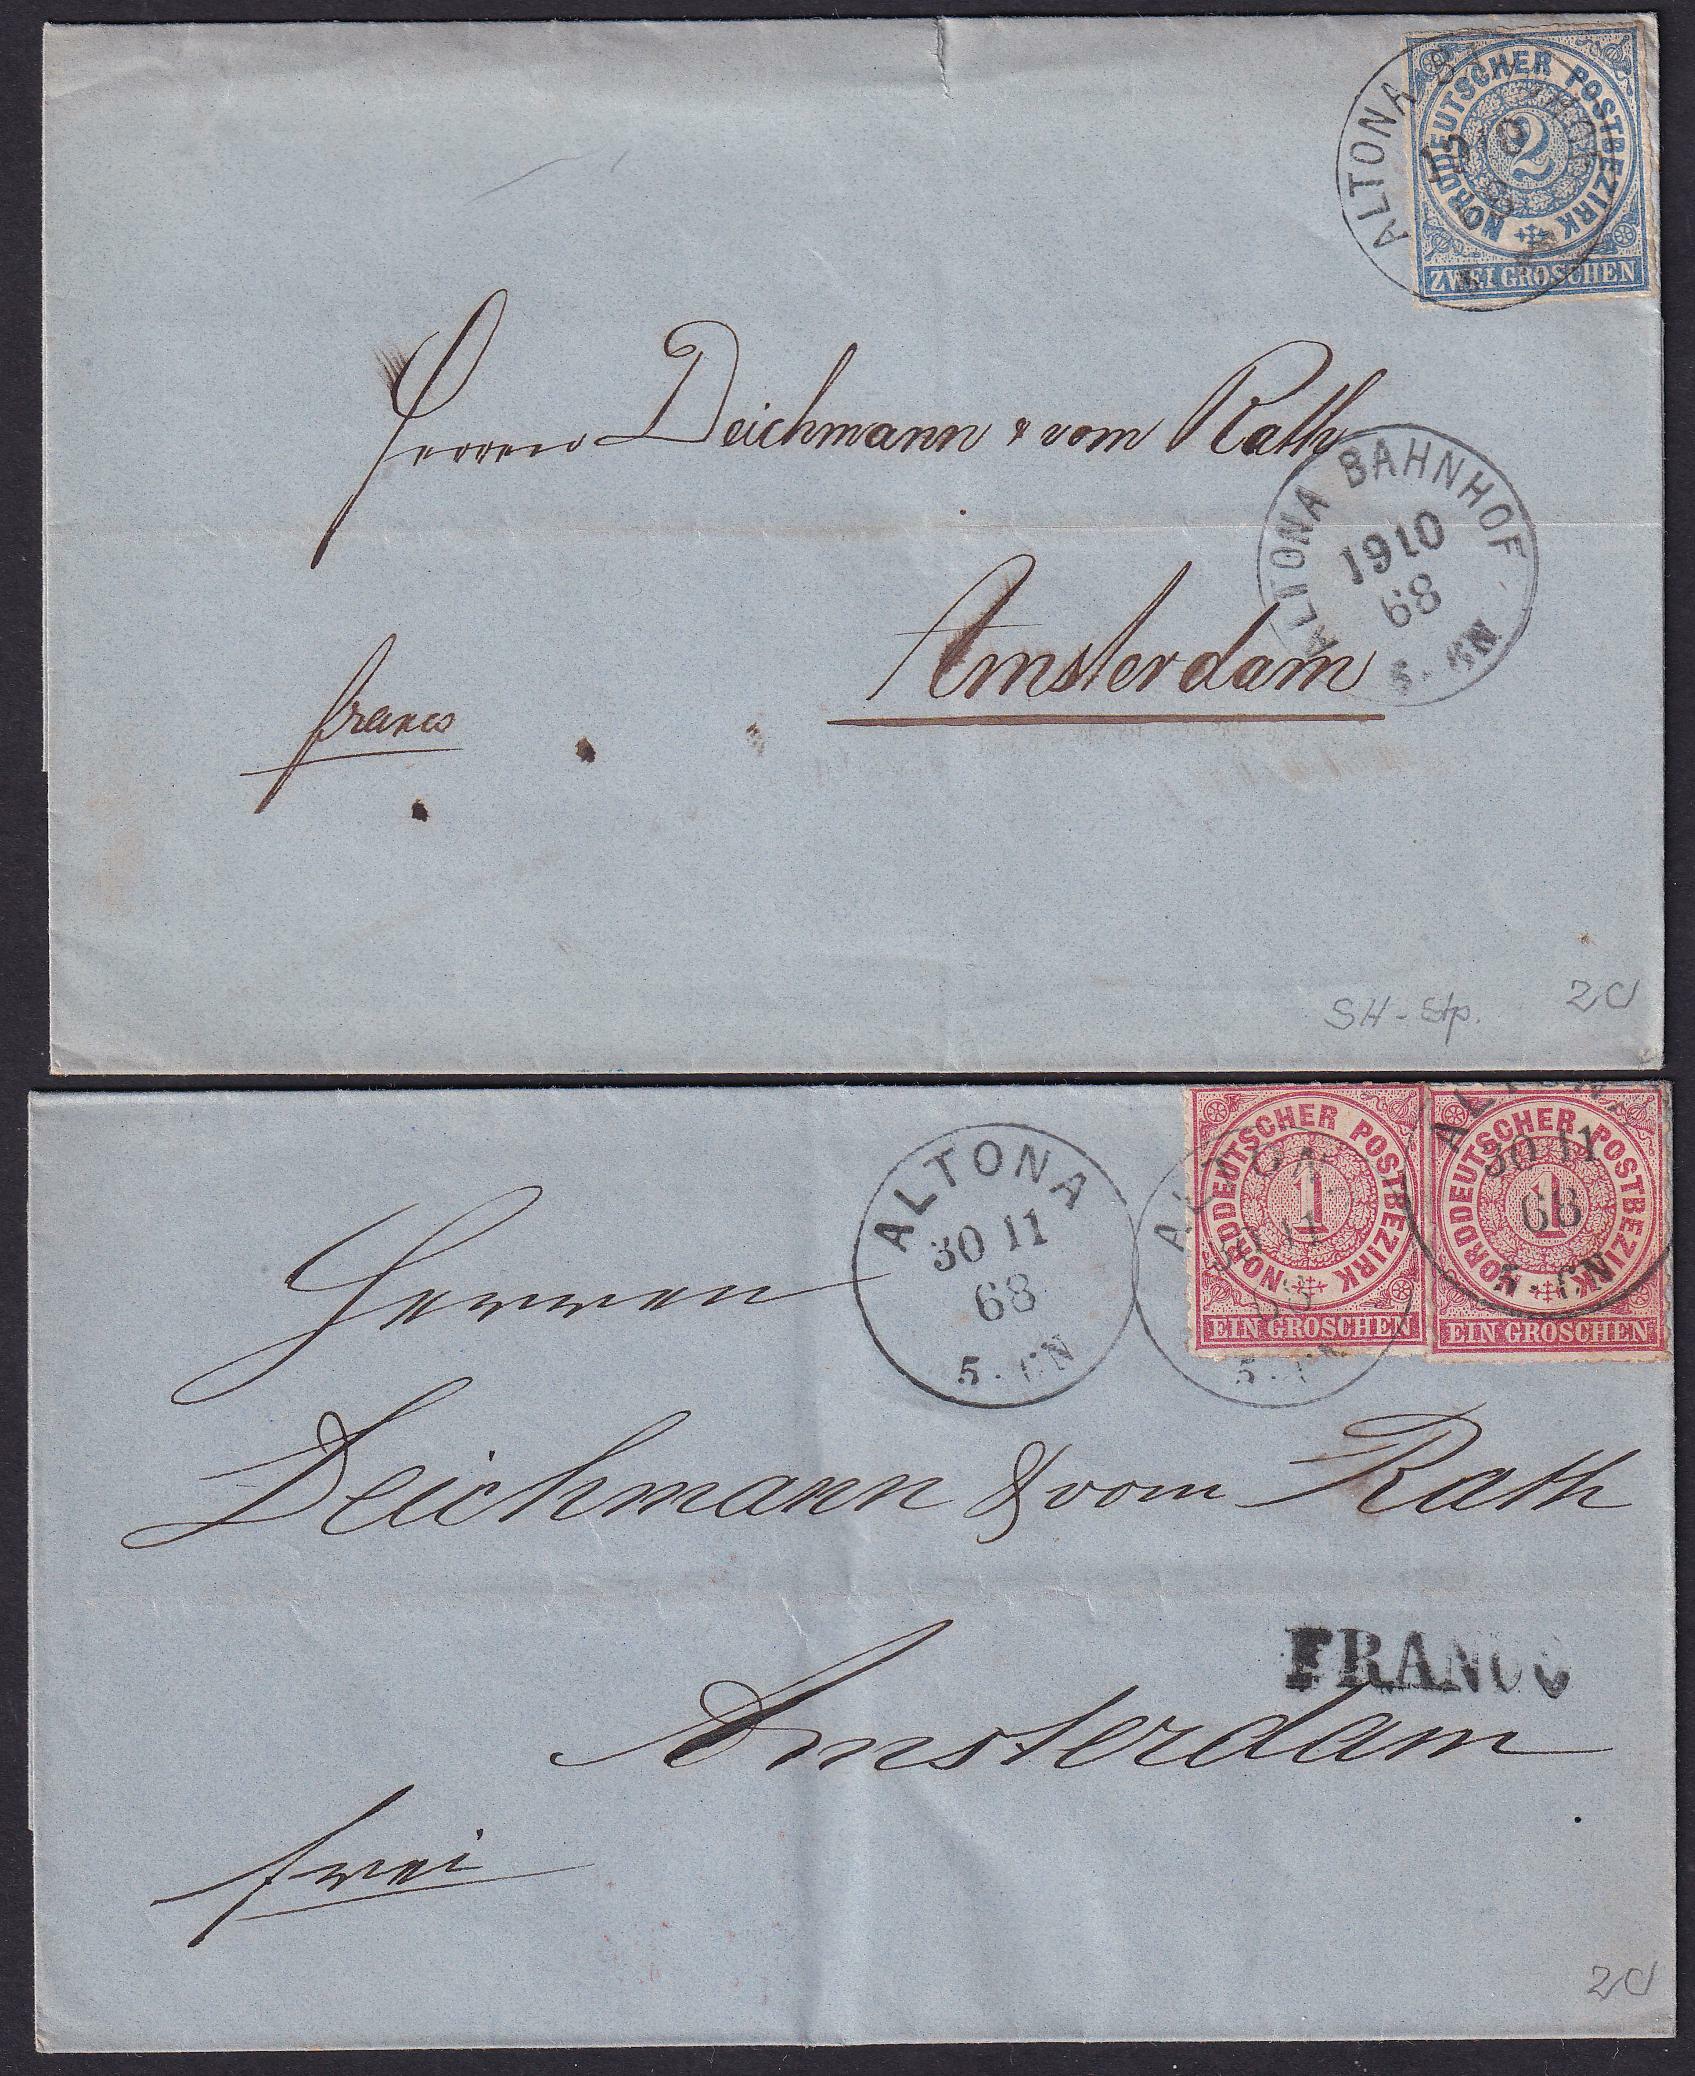 NORDDEUTSCHER POSTBEZIRK
2
ZWEI GROSCHEN
ALTONA
Herren Deichmann & vom Rath
ALTONA BAHNHOF
1910
68
5-6N
Amsterdam
franco
SH-Stp.
NORDDEUTSCHER POSTBEZIRK
1
EIN GROSCHEN
NORDDEUTSCHER POSTBEZIRK
1
EIN GROSCHEN
ALTONA
30 11
68
5-6N
ALTONA
30 11
68
ALTONA
30 11
68
5-6N
Herren
Deichmann & vom Rath
FRANCO
Amsterdam
frei